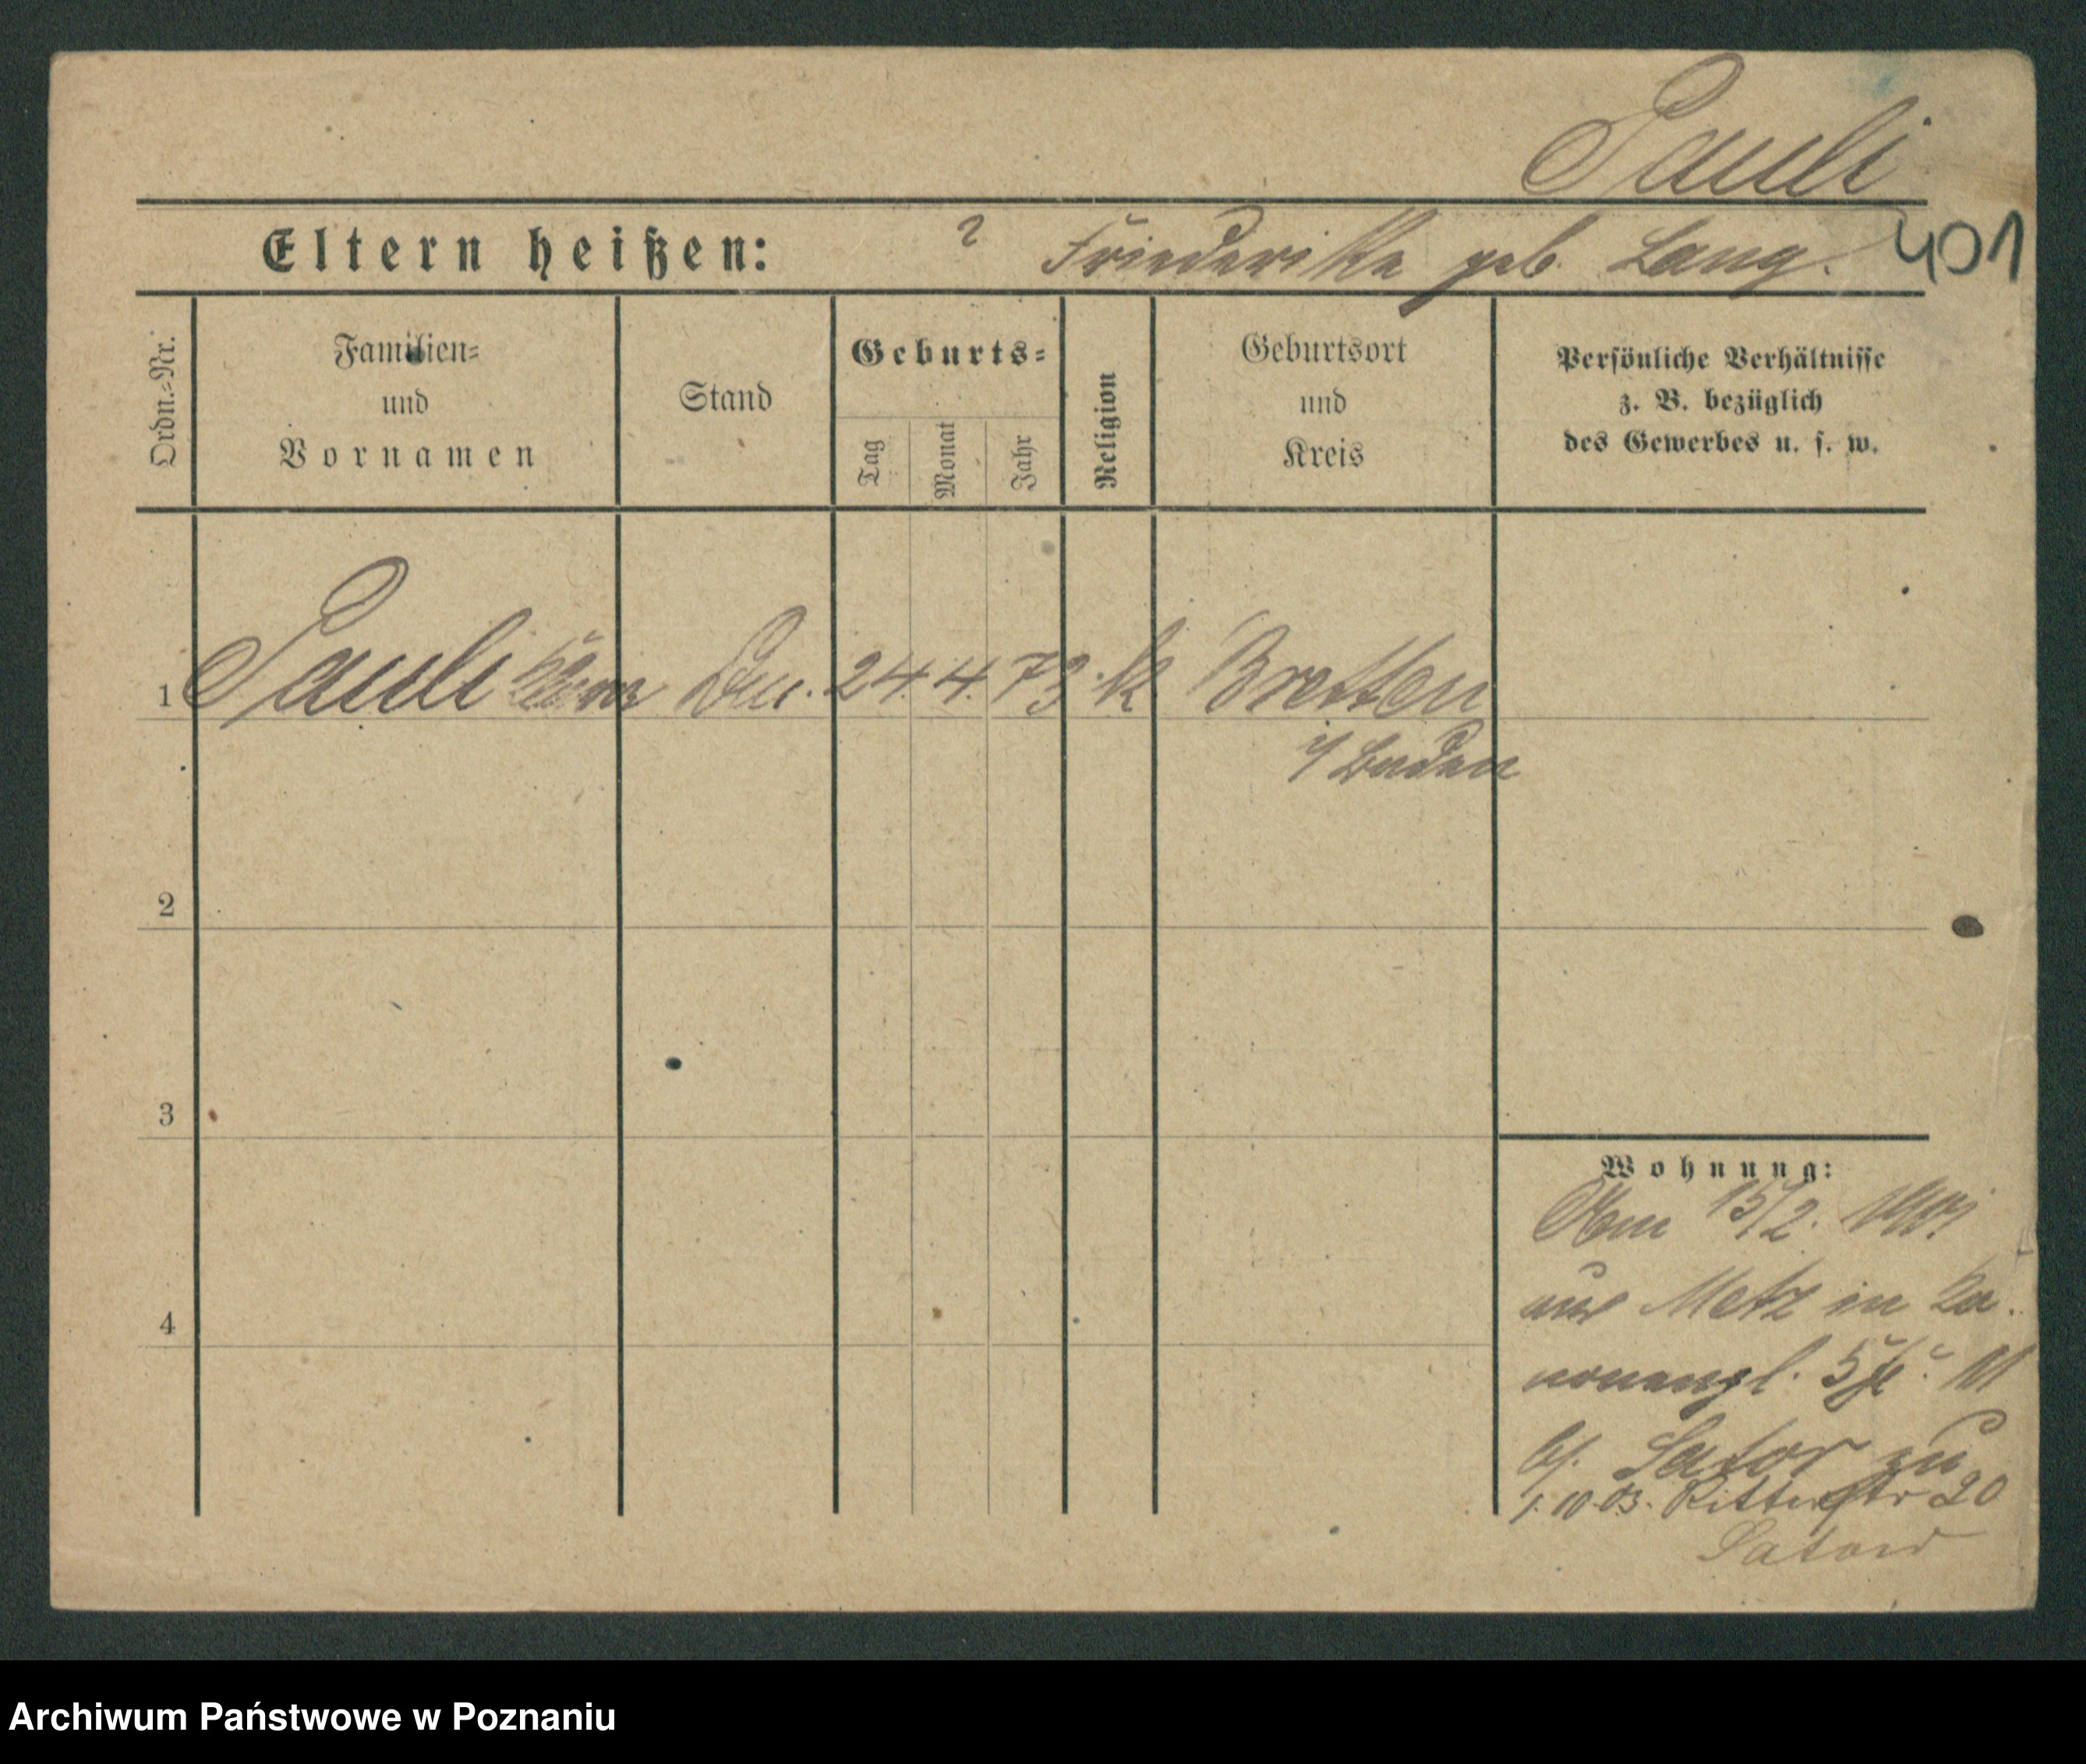 Pauli
401
Eltern heißen: ? Friederike geb. Lang.
Ordn.=Nr.
Familien=
und
Vornamen
Stand
Geburts=
Tag
Monat
Jahr
Religion
Geburtsort
und
Kreis
Persönliche Verhältnisse
z. B. bezüglich
des Gewerbes u. s. w.
1 Pauli 24. 4. 73. k Bretten
i/ Baden
2
3
4
Wohnung:
15/2.
aus Metz in Ka.
nonenpl.
Sator zu
1.10.03. Ritterstr 20
Archiwum Państwowe w Poznaniu